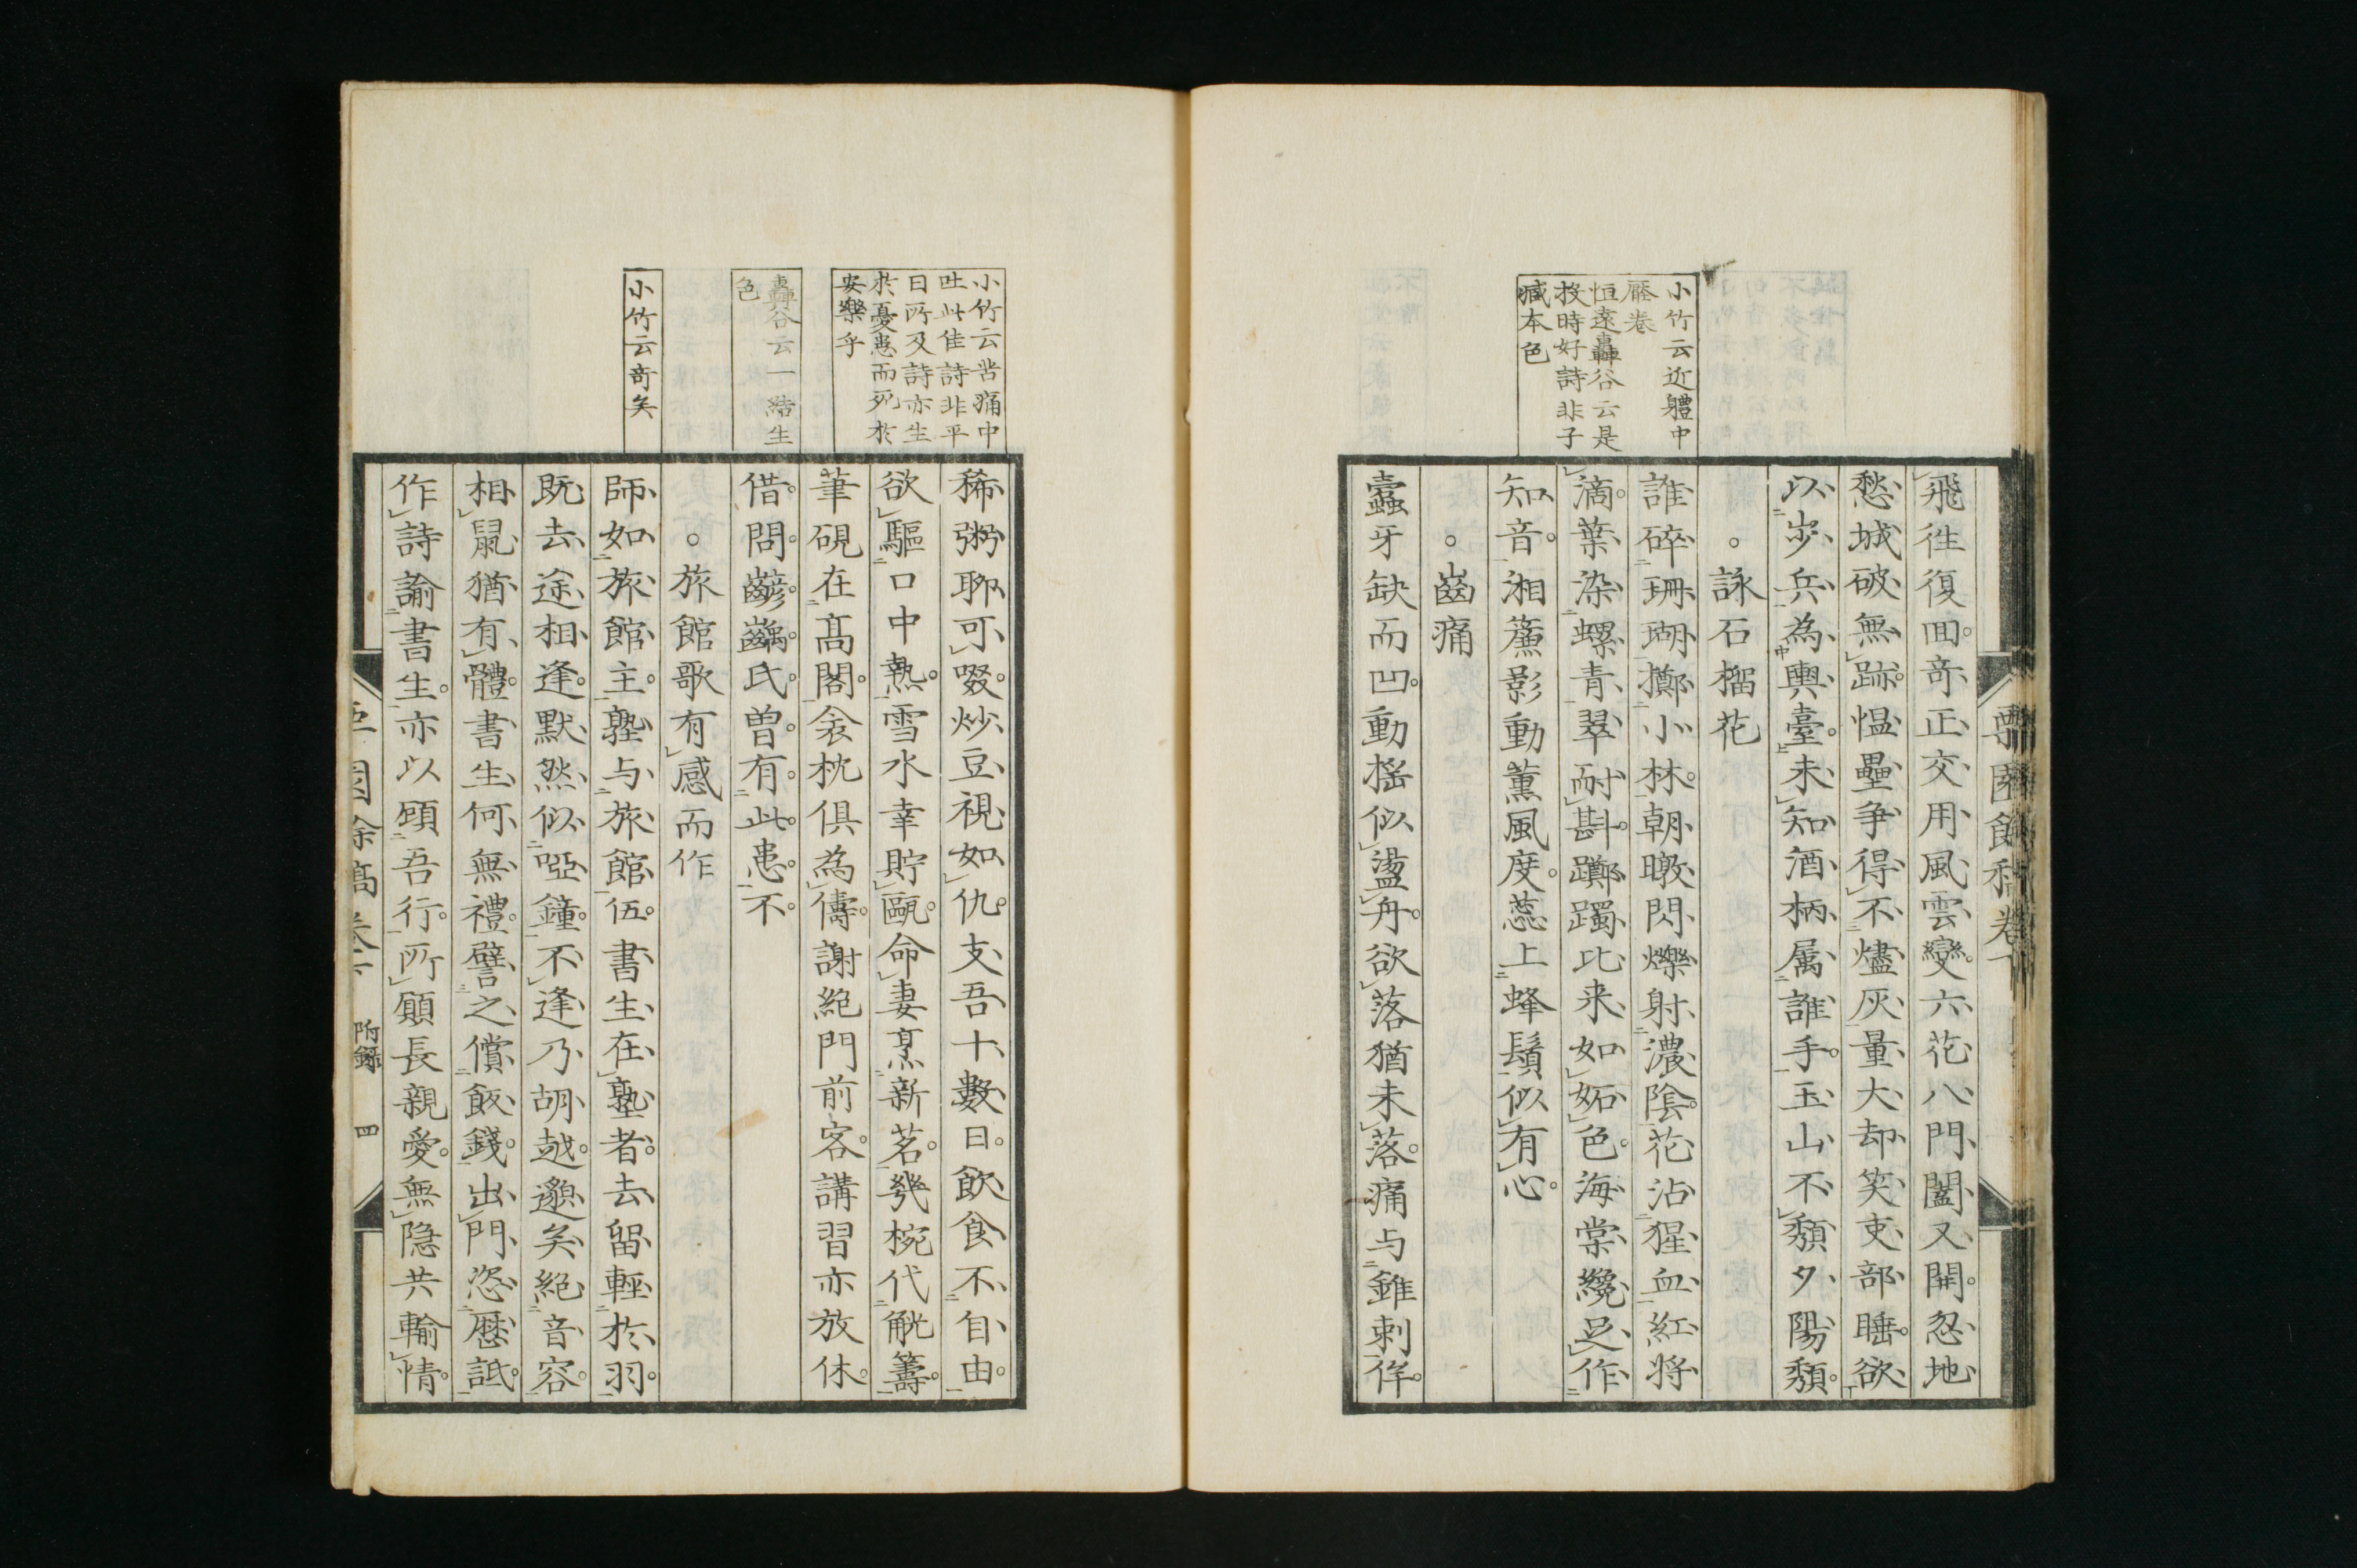 小竹云近體中
壓卷
恒遠轟谷云是
投時好詩非子
臧本色
飛徃復囬竒正交用風雲變六花八門闔又開忽地
愁城破無跡愠壘爭得不燼灰量大却笑吏部睡欲
以步兵為輿臺未知酒柄属誰手玉山不頽夕陽頽
。詠石榴花
誰碎珊瑚擲小林朝暾閃爍射濃陰花沾猩血紅將
滴葉染螺青翠耐斟躑躅比来如妬色海棠纔足作
知音湘簾影動薰風度蕊上蜂鬚似有心
。齒痛
蠹牙缺而凹動揺似盪舟欲落猶未落痛与錐刺侔
小竹云苦痛中
吐此佳詩非平
日所及詩亦生
於憂患而死於
安樂乎
轟谷云一結生
色
小竹云竒矣
稀粥聊可啜炒豆視如仇支吾十數日飲食不自由
欲驅口中熱雪水幸貯甌命妻烹新茗幾椀代觥籌
筆硯在髙閣衾枕倶為儔謝絶門前客講習亦放休
借問齴齲氏曽有此患不
。旅館歌有感而作
師如旅館主塾与旅館伍書生在塾者去留輕於羽
既去途相逢默然似啞鐘不逢乃胡越邈矣絶音容
相鼠猶有體書生何無禮譬之償飯錢出門恣慝詆
作詩諭書生亦以顧吾行所願長親愛無隠共輸情
附録 四